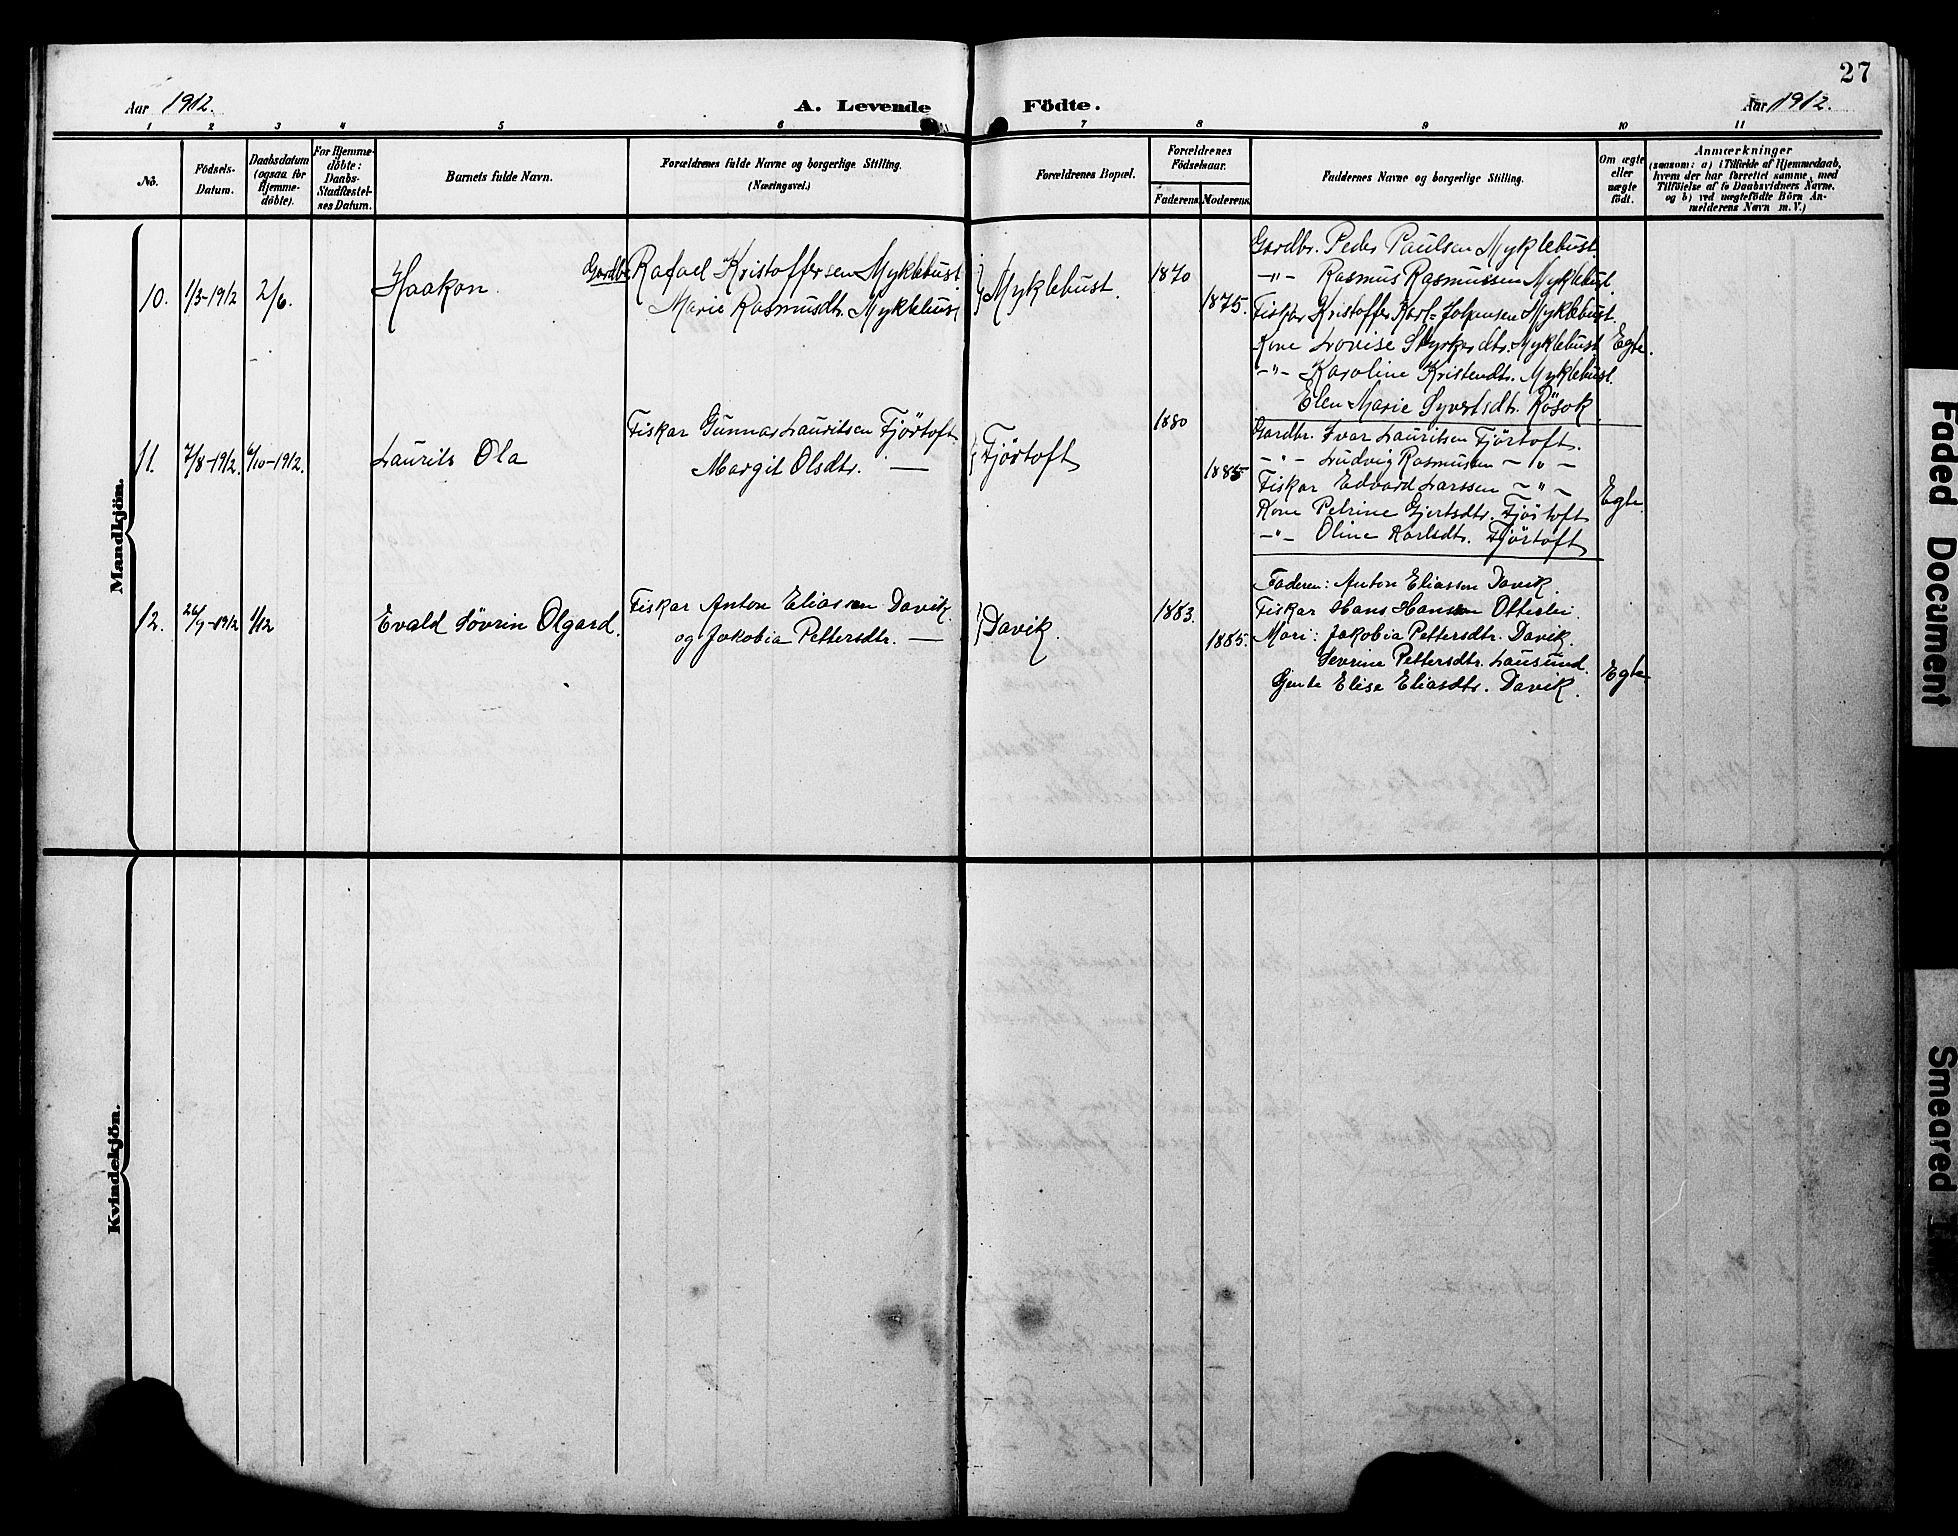 27
Aar 1912.
A. Levende Födte.
Aar 1912.
1 2 3 4 5 6 7 8 9 10 11
No.
Födsels-Datum.
Daabsdatum (ogsaa for Hjemmedöbte).
For Hjemmedöbte: Daabs-Stadfæstelses Datum.
Barnets fulde Navn.
Forældrenes fulde Navne og borgerlige Stilling.
(Næringsvei.)
Forældrenes Bopæl.
Forældrenes Födselsaar.
Faderens
Moderens
Faddernes Navne og borgerlige Stilling.
Om ægte eller uægte födt.
Anmærkninger
(saasom: a) i Tilfælde af Hjemmedaab, hvem der har forrettet samme, med Tilföielse af to Daabsvidners Navne, og b) ved uægtefödte Börn Anmelderens Navn m. V.)
Mandkjön.
10. 1/3-1912 2/6. Haakon.
Gardbr. Rafael Kristoffersen Myklebust
Marie Rasmusdtr. Myklebust
Myklebust. 1870 1875.
Gardbr. Peder Paulsen Myklebust.
-"- Rasmus Rasmussen Myklebust.
Fisker Kristoffer Karl-Johansen Myklebust.
Kone Lovise Styrkerdtr. Myklebust Egte.
-"- Karoline Kristendtr. Myklebust.
Elen Marie Syvertsdtr. Rösok
11. 7/8-1912. 6/10-1912. Laurits Ola
Fiskar Gunnar Lauritsen Fjörtoft.
Margit Olsdtr. —
Fjörtoft 1880 1885
Gardbr. Ivar Lauritsen Fjörtoft.
-"- Ludvig Rasmussen -"-
Fiskar Edvard Larssen -"-
Kone Petrine Gjertsdtr. Fjörtoft Egte.
-"- Oline Karlsdtr. Fjörtoft
12. 26/9-1912 1/12 Evald Sövrin Olgard.
Fiskar Anton Eliassen Davik.
og Jakobia Pettersdtr. —
Davik. 1883. 1885.
Faderen: Anton Eliassen Davik.
Fiskar Hans Hansen Otterlei.
Mori: Jakobia Pettersdtr. Davik.
Sevrine Pettersdtr. Lausund.
Gente Elise Eliasdtr. Davik. Egte
Kvindekjön.
Faded Document
Smeared